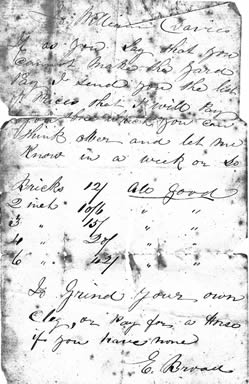 William Davies
If as you say that you
cannot make the yard
Pay I send you the list
of Prices that I will Pay
you which you can
think over and let me
Know in a week or so
Bricks 12/ all good
2 inch 10/6 " "
3 " 15/ " "
4 " 20/ " "
6 " " "
To Grind your own
Clay, or Pay for a Horse
if you have none
E. Broad